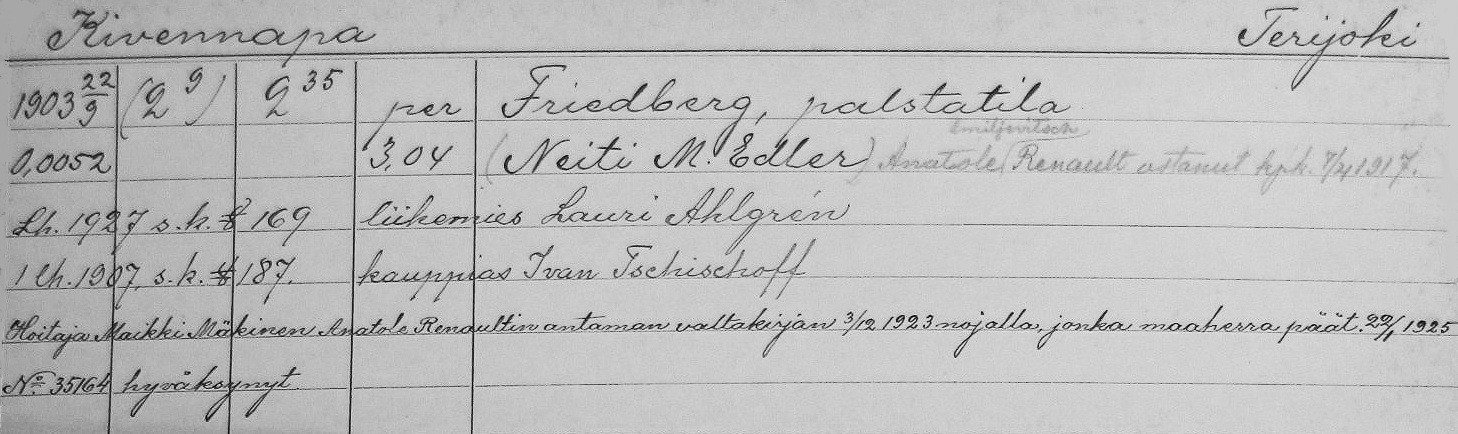 Kivennapa Terijoki
1903 22/9 (2⁹) 2³⁵ per Friedberg, palstatila
Emiljevitsch
0,0052 3,04 (Neiti M. Edler) Anatole Renault ostanut kpk. 7/4 1917.
Lh. 1927 s.k. § 169 liikemies Lauri Ahlgrén
1 lh. 1907, s.k. § 187. kauppias Ivan Tschischoff
Hoitaja Maikki Mäkinen Anatole Renaultin antaman valtakirjan 3/12 1923 nojalla, jonka maaherra päät. 22/1 1925
No. 35164 hyväksynyt.